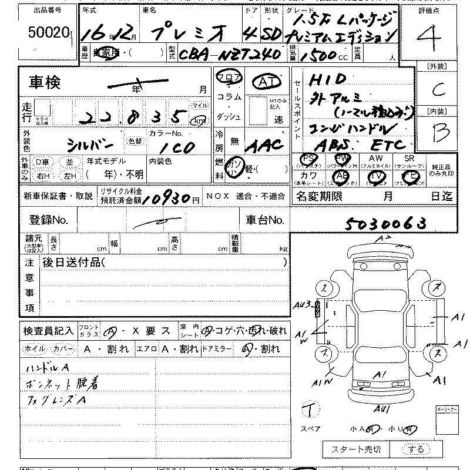 出品番号 年式 車名 ドア 形状 グレード 評価点
50020 16年12月 プレミオ 4 SD 1.5F Lパッケージ 4
プレミアムエディション
車歴 自家用・( ) 型式 CBA-NZT240 排気量 1500cc 定員 人
車検 年 月 フロア AT セールスポイント HID [外装]
コラム 外アルミ C
走行 22,835 マイル km ダッシュ 速 [内装]
外装色 シルバー 色替 カラーNo. 1C0 冷房 無 AAC コンビハンドル B
燃料 ガソリン 軽・( ) ABS ETC
外車のみ D車 並 年式モデル 内装色
右H 左H ( 年)・不明
PS PW AW SR 純正品のみ丸印
カワ AB TV
新車保証書・取説 リサイクル料金預託済金額 10930円 NOX 適合・不適合 名変期限 月 日迄
登録No. 車台No. 5030063
諸元 長さ cm 幅 cm 高さ cm 積載量 kg
注意事項 後日送付品( )
検査員記入 フロントガラス A・X 要ス 室内シート コゲ・穴・汚れ・破れ
ホイル カバー A・割れ エアロ A・割れ ドアミラー A・割れ
ハンドルA
ボンネット脱着
フォグレンズA
A2
ス ス
AU3 A1
A1 W A1
ス ス
A1W A1 A1
AU1
T
スペア 小A 小U
スタート売切 する